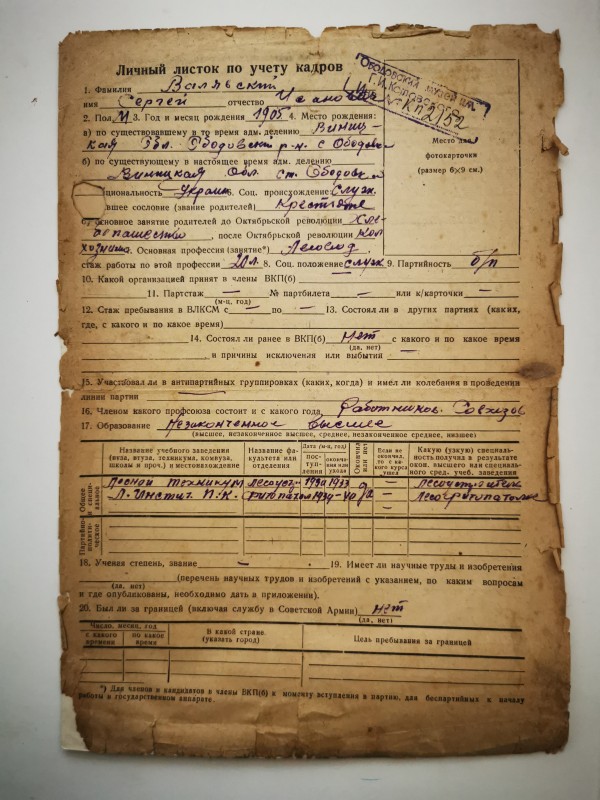 Личный листок по учету кадров
ОБОДОВСКИЙ МУЗЕЙ
Г.И. Котовского
КП 2152
1. Фамилия Вальский
имя Сергей отчество
2. Пол М 3. Год и месяц рождения 1905 4. Место рождения:
а) по существовавшему в то время адм. делению Винниц-
кая Обл. Ободовский р-н. с Ободовка
б) по существующему в настоящее время адм. делению
Винницкая Обл. Ободовка
Место для
фотокарточки
(размер 6×9 см.)
циональность Украин 6. Соц. происхождение: Служ.
вшее сословие (звание родителей) Крестьяне
основное занятие родителей до Октябрьской революции Хле-
бопашество, после Октябрьской революции Кол
хозники. Основная профессия (занятие*) Лесовод.
стаж работы по этой профессии 20 л. 8. Соц. положение служ 9. Партийность б/п
10. Какой организацией принят в члены ВКП(б)
11. Партстаж — № партбилета — или к/карточки —
(м-ц, год)
12. Стаж пребывания в ВЛКСМ с — по — 13. Состоял ли в других партиях (каких,
где, с какого и по какое время)
14. Состоял ли ранее в ВКП(б) Нет с какого и по какое время
(да, нет)
и причины исключения или выбытия —
15. Участвовал ли в антипартийных группировках (каких, когда) и имел ли колебания в проведении
линии партии —
16. Членом какого профсоюза состоит и с какого года, Работников. Совхозов
17. Образование Незаконченное высшее
(высшее, незаконченное высшее, среднее, незаконченное среднее, низшее)
Название учебного заведения
(вуза, втуза, техникума, комвуза,
школы и проч.) и местонахождение
Название фа-
культета или
отделения
Дата (м-ц, год)
пос-
туп-
ления
оконча-
ния или
ухода
Окончил
или нет
Если не
окончил,
то с ка-
кого курса
ушел
Какую (узкую) специаль-
ность получил в результате
окон. высшего или специаль-
ного сред. учеб. заведения
Общее и специальное
Лесной техникум лесоуст- 1930 1933 — лесоустроитель
Л. Инстит. П.К. фитопатол 1939-40 да — Лесофитопатолог
Партийно-политической
18. Ученая степень, звание — 19. Имеет ли научные труды и изобретения
(перечень научных трудов и изобретений с указанием, по каким вопросам
(да, нет)
и где опубликованы, необходимо дать в приложении).
20. Был ли за границей (включая службу в Советской Армии) нет
(да, нет)
Число, месяц, год
с какого
времени
по какое
время
В какой стране
(указать город)
Цель пребывания за границей
*) Для членов и кандидатов в члены ВКП(б) к моменту вступления в партию, для беспартийных к началу
работы в государственном аппарате.